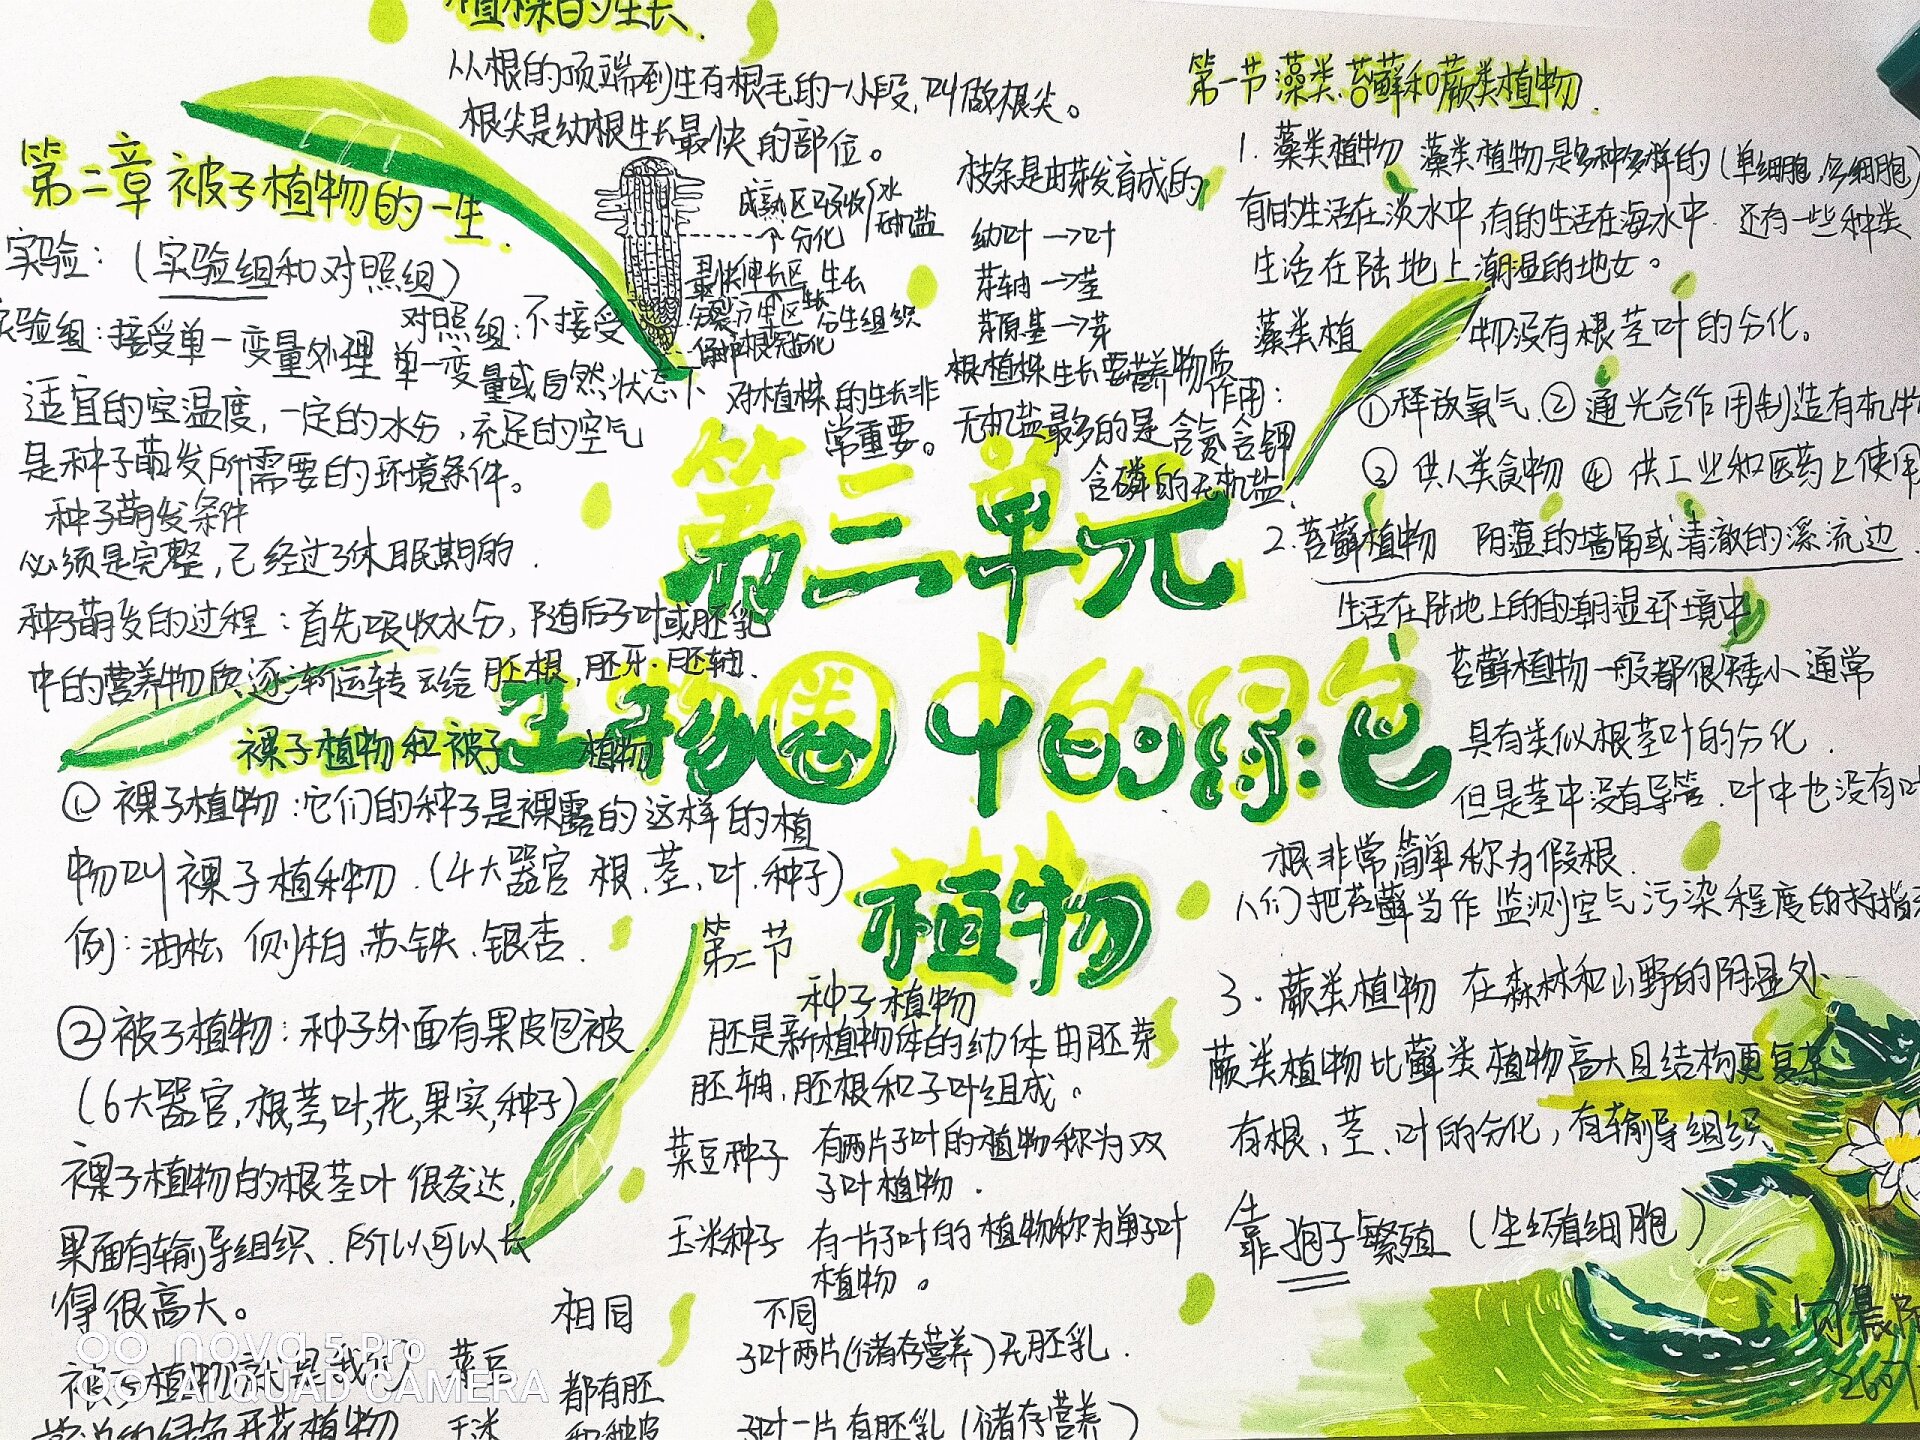 植株的生长.
从根的顶端到生有根毛的一小段,叫做根尖。
根尖是幼根生长最快的部位。
成熟区 吸收 水 无机盐
个分化
最快伸长区 生长
分生区 分生组织
根冠
对植株的生长非
常重要。
枝条是由芽发育成的
幼叶→叶
芽轴→茎
芽原基→芽
根植株生长要营养物质
无机盐最多的是含氮含钾
含磷的无机盐.
第二章 被子植物的一生.
实验:(实验组和对照组)
实验组:接受单一变量处理 对照组:不接受
单一变量或自然状态下
适宜的室温度,一定的水分,充足的空气
是种子萌发所需要的环境条件。
种子萌发条件
必须是完整,已经过了休眠期的.
种子萌发的过程:首先吸收水分,随后子叶或胚乳
中的营养物质逐渐运转云给胚根,胚牙.胚轴.
第三单元
生物圈中的绿色
植物
裸子植物和被子植物
① 裸子植物:它们的种子是裸露的这样的植
物叫裸子植种物.(4大器官 根.茎.叶.种子)
例:油松 侧柏.苏铁.银杏.
②被子植物:种子外面有果皮包被
(6大器官,根,茎,叶,花,果实,种子)
裸子植物的根茎叶很发达,
里面有输导组织.所以可以长
得很高大。
nova 5 Pro
AI QUAD CAMERA
被子植物就是我们
常说的绿色开花植物
第二节
种子植物
胚是新植物体的幼体由胚芽
胚轴.胚根和子叶组成。
菜豆种子 有两片子叶的植物称为双
子叶植物.
玉米种子 有一片子叶的植物称为单子叶
植物。
相同 不同
菜豆 都有胚 子叶两片(储存营养)无胚乳.
玉米 和种皮 子叶一片有胚乳(储存营养)
第一节 藻类.苔藓和蕨类植物.
1.藻类植物 藻类植物是多种多样的(单细胞,多细胞)
有的生活在淡水中,有的生活在海水中.还有一些种类
生活在陆地上潮湿的地女。
藻类植物没有根茎叶的分化。
作用:
①释放氧气.②通光合作用制造有机物
③ 供人类食物 ④ 供工业和医药上使用
2.苔藓植物 阴湿的墙角或清澈的溪流边.
生活在陆地上的的潮湿环境中
苔藓植物一般都很矮小通常
具有类似根茎叶的分化.
但是茎中没有导管.叶中也没有叶
根非常简单称为假根.
人们把苔藓当作监测空气污染程度的指
3.蕨类植物 在森林和山野的阴湿处.
蕨类植物比藓类植物高大且结构更复杂
有根,茎.叶的分化,有输导组织
靠孢子繁殖(生殖细胞)